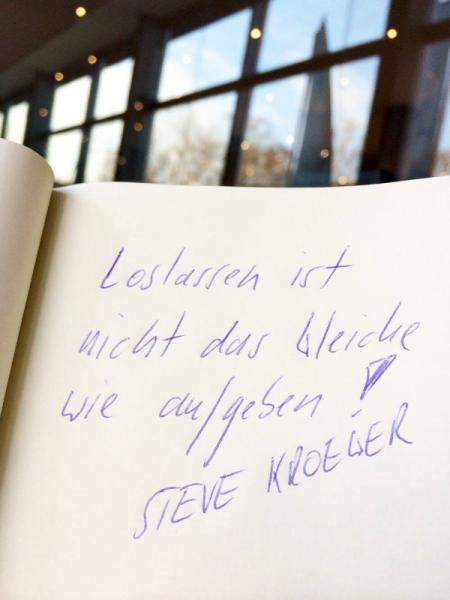 Loslassen ist
nicht das Gleiche
wie aufgeben !
STEVE KROEGER